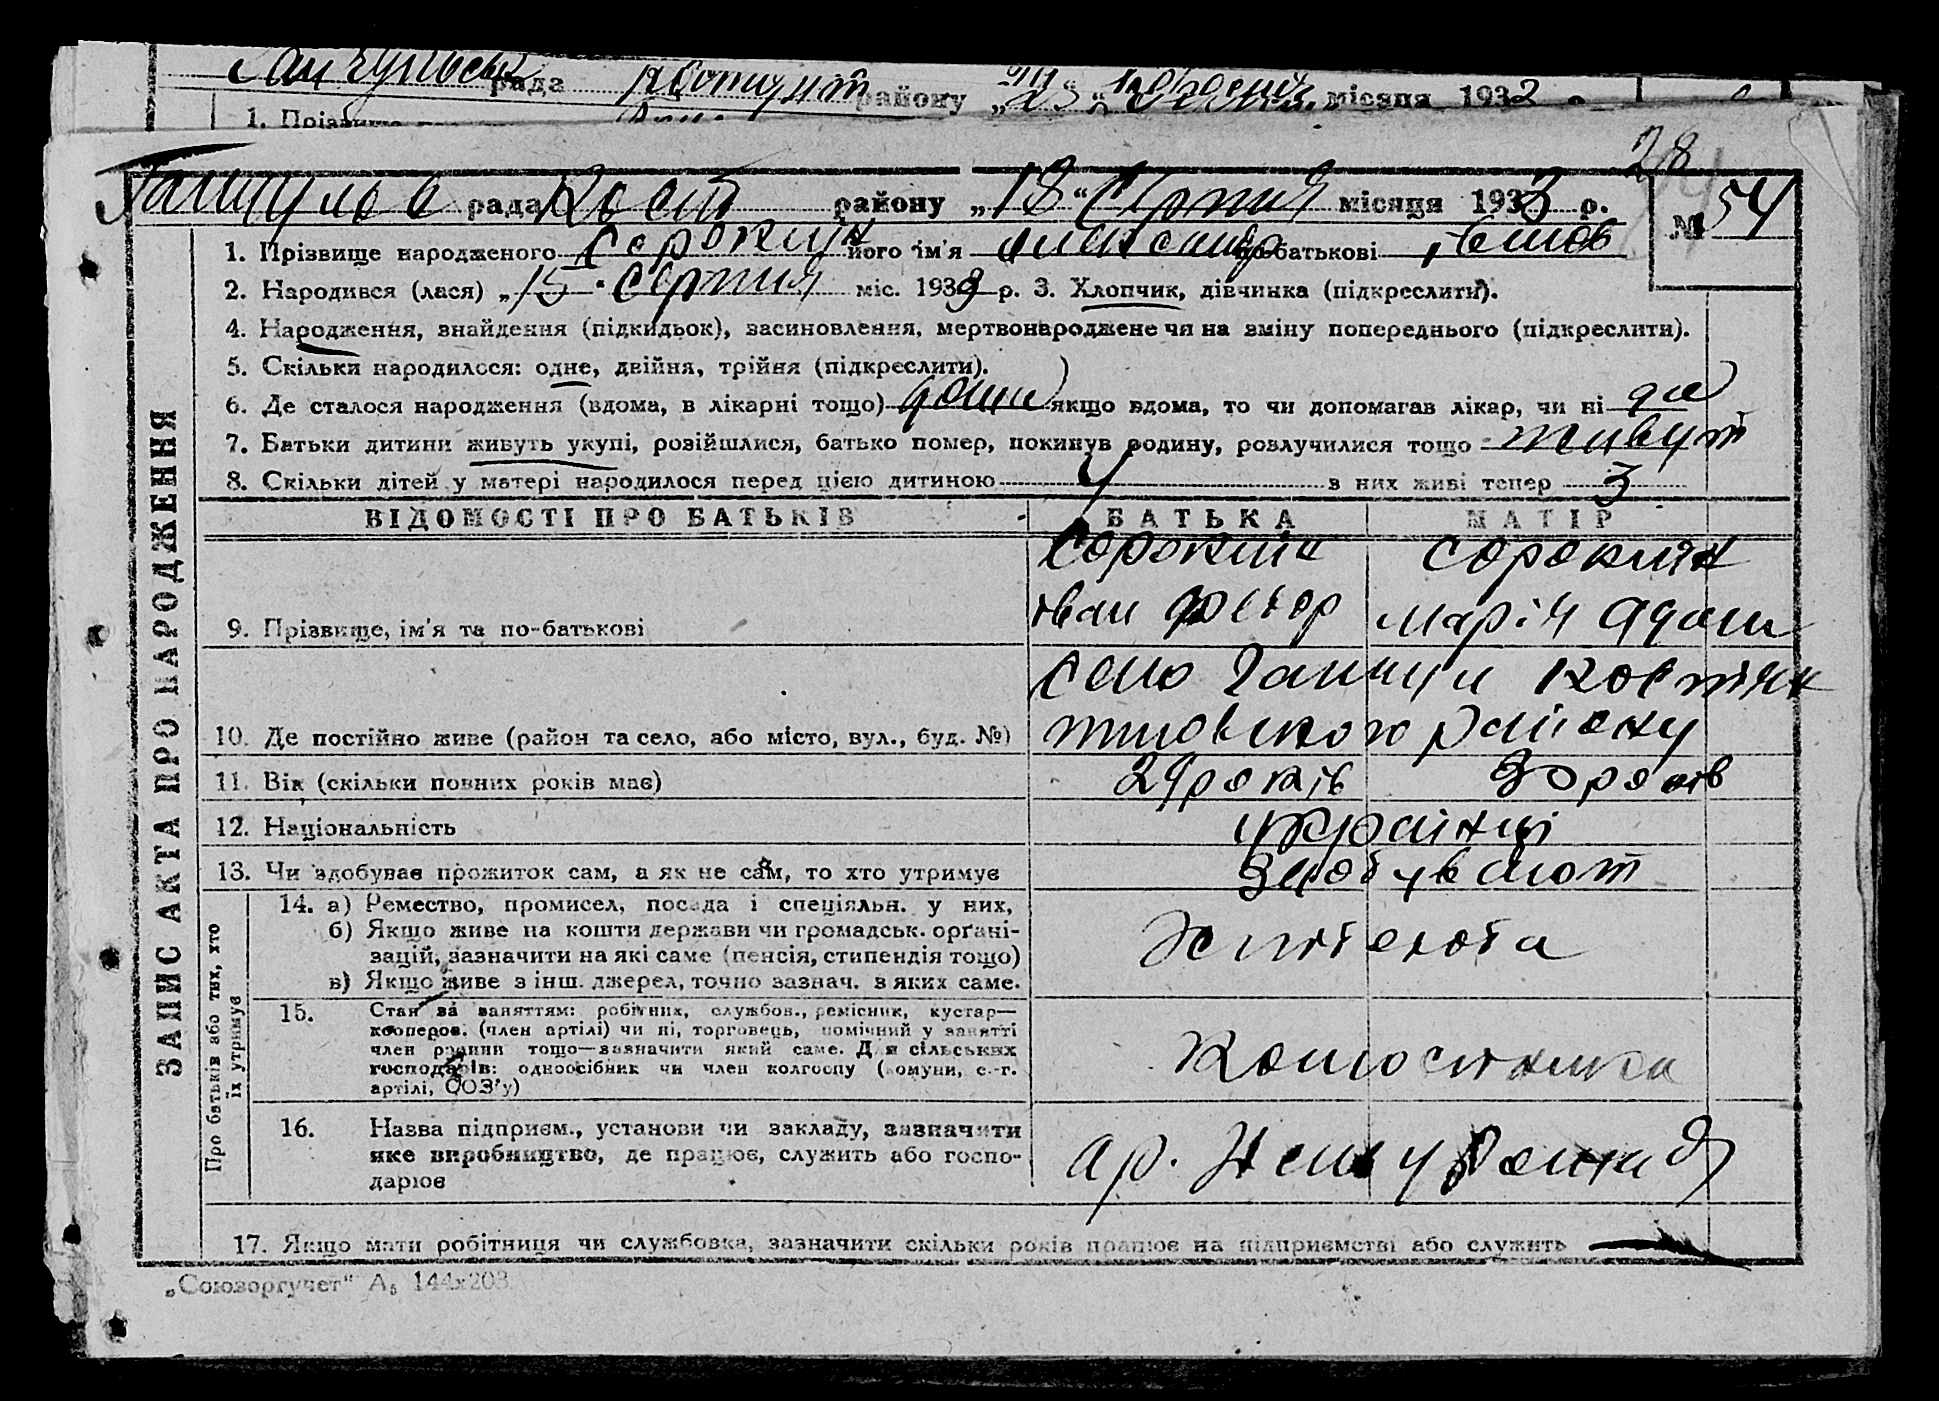 рада району „25“ місяця 1933 р.
1. Прізвище
28
рада Кост району „18“ Серпня місяця 1933 р.
№ 54
1. Прізвище народженого Сорокин його ім'я Александр по-батькові Іванов
2. Народився (лася) „15“ Серпня міс. 1933 р. 3. Хлопчик, дівчинка (підкреслити).
4. Народження, знайдення (підкидьок), засиновлення, мертвонароджене чи на зміну попереднього (підкреслити).
5. Скільки народилося: одне, двійня, трійня (підкреслити).
6. Де сталося народження (вдома, в лікарні тощо) дома якщо вдома, то чи допомагав лікар, чи ні да
7. Батьки дитини живуть укупі, розійшлися, батько помер, покинув родину, розлучилися тощо живут
8. Скільки дітей у матері народилося перед цією дитиною 4 з них живі тепер 3
ВІДОМОСТІ ПРО БАТЬКІВ БАТЬКА МАТІР
Сорокин Сорокин
Іван Федор Марія Адам
9. Прізвище, ім'я та по-батькові
село
10. Де постійно живе (район та село, або місто, вул., буд. №) району
11. Вік (скільки повних років має) 29 років 30 років
12. Національність українці
13. Чи здобуває прожиток сам, а як не сам, то хто утримує здобувают
14. а) Ремество, промисел, посада і спеціяльн. у них,
б) Якщо живе на кошти держави чи громадськ. органі-
зацій, зазначити на які саме (пенсія, стипендія тощо)
в) Якщо живе з інш. джерел, точно зазнач. з яких саме.
15. Стан за заняттям: робітник, службов., ремісник, кустар—
кооперов. (член артілі) чи ні, торговець, помічний у занятті
член родини тощо—зазначити який саме. Для сільських
господарів: одноосібник чи член колгоспу (комуни, с.-г.
артілі, СОЗ'у)
16. Назва підприєм., установи чи закладу, зазначити
яке виробництво, де працює, служить або госпо-
дарює
ар.
17. Якщо мати робітниця чи службовка, зазначити скільки років працює на підприємстві або служить —
„Союзоргучет“ А5 144х203
ЗАПИС АКТА ПРО НАРОДЖЕННЯ
Про батьків або тих, хто
їх утримує